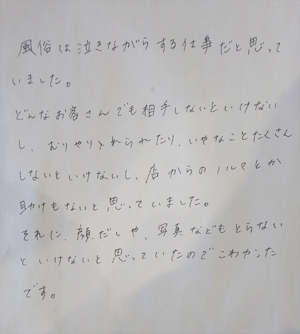 風俗は泣きながらする仕事だと思って
いました。
どんなお客さんでも相手しないといけない
し、むりやりやられたり、いやなことたくさん
しないといけないし、店からのノルマとか
助けもないと思っていました。
それに、顔だしや、写真などもとらない
といけないと思っていたのでこわかった
です。